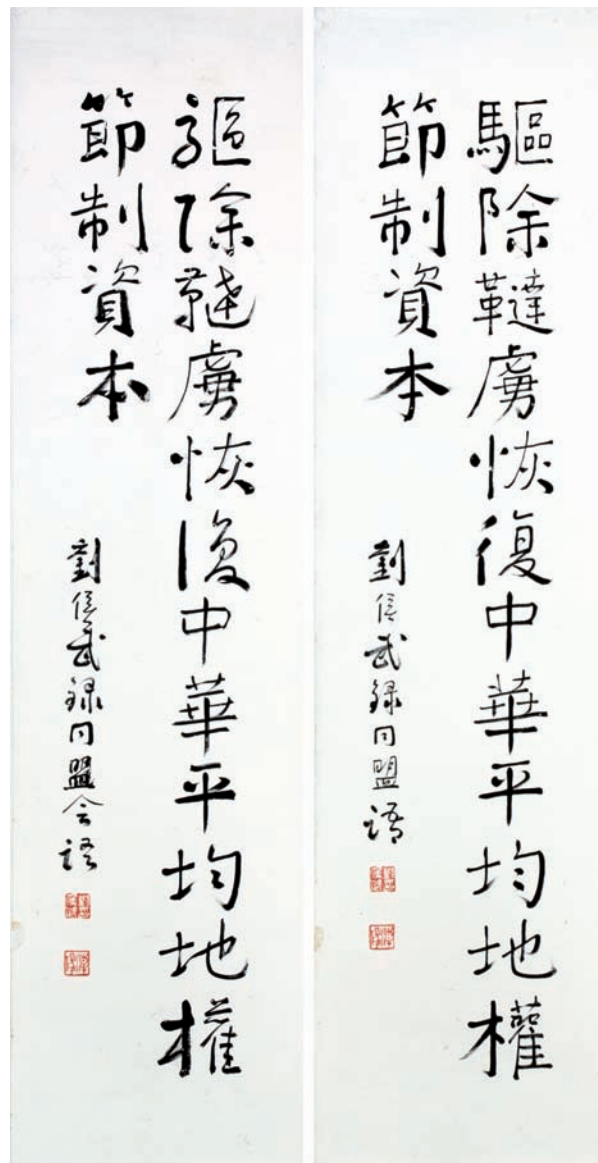 驅除韃虜恢復中華平均地權
節制資本
劉信武錄同盟語
驅除韃虜恢復中華平均地權
節制資本
劉信武錄同盟会語